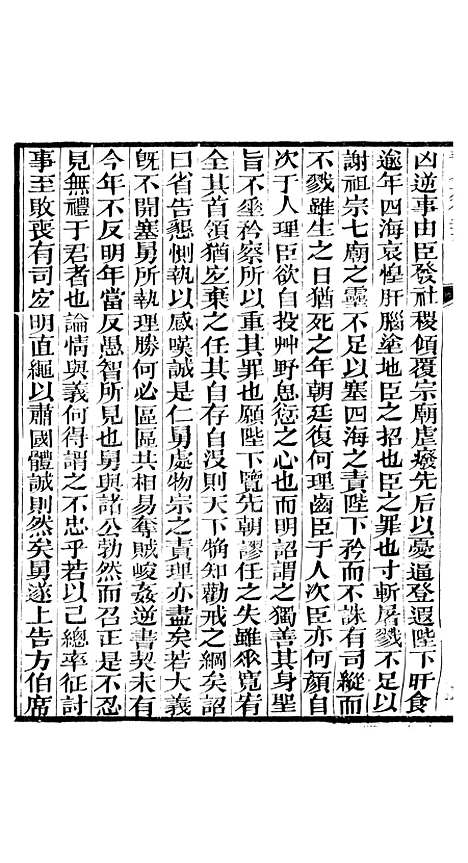 凶逆事由臣發社稷傾覆宗廟虛廢先后以憂逼登遐陛下旰食
逾年四海哀惶肝腦塗地臣之招也臣之罪也寸斬屠戮不足以
謝祖宗七廟之靈不足以塞四海之責陛下矜而不誅有司縱而
不戮雖生之日猶死之年朝廷復何理齒臣于人次臣亦何顏自
次于人理臣欲自投艸野思愆之心也而明詔謂之獨善其身聖
旨不垂矜察所以重其罪也願陛下覽先朝謬任之失雖垂寬宥
全其首領猶宐棄之任其自存自沒則天下犓知勸戒之綱矣詔
曰省告懇惻執以感嘆誠是仁舅處物宗之責理亦盡矣若大義
旣不開塞舅所執理勝何必區區共相易奪賊峻姦逆書契未有
今年不反明年當反愚智所見也舅與諸公勃然而召正是不忍
見無禮于君者也論情與義何得謂之不忠乎若以己總率征討
事至敗喪有司宐明直繩以肅國體誠則然矣舅遂上告方伯席